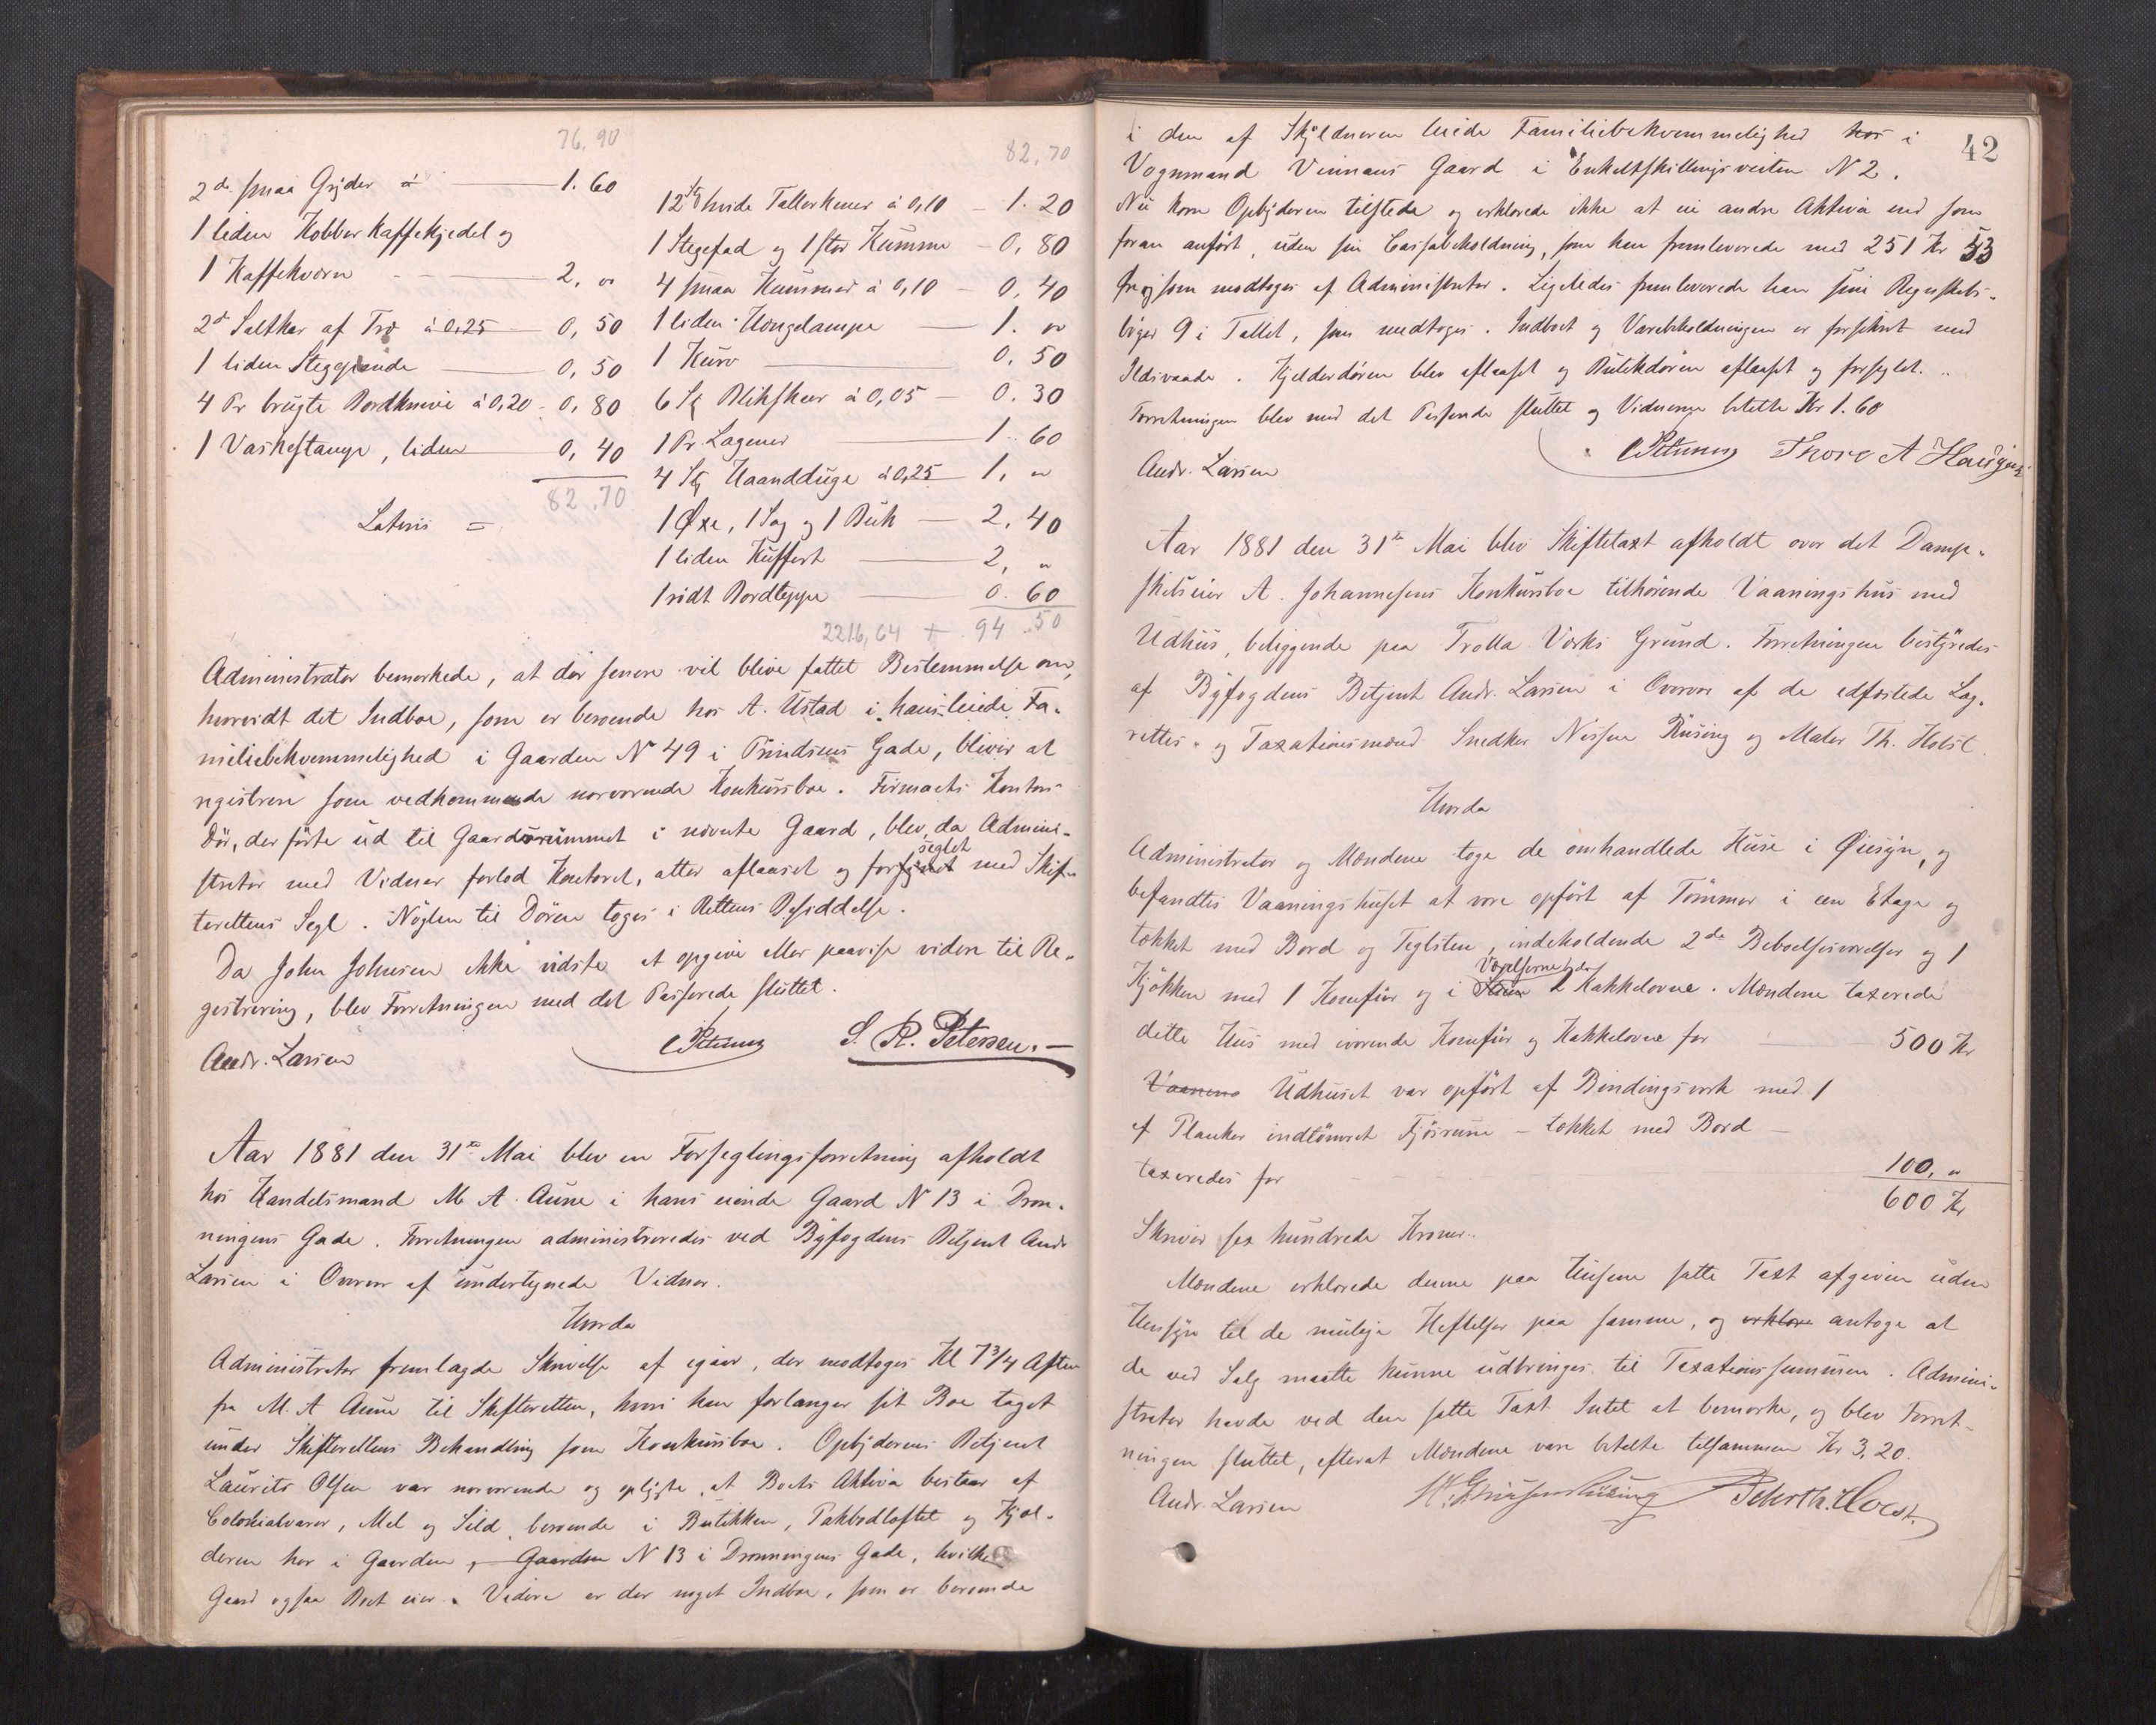 76,90
2de smaa Gryder à 1.60
1 liden Kobber Kaffekjedel og
1 Kaffekværn 2, "
2de Saltkar af Træ à 0,25 0,50
1 liden Stegepande 0,50
4 Pr brugte Bordknive à 0,20 0,80
1 Vaskestamp, liden 0,40
82,70
Lateris =
82,70
12 Stk hvide Tallerkener à 0,10 1.20
1 Stegefad og 1 stor Kumme 0,80
4 smaa Kummer à 0,10 0,40
1 liden Hængelampe 1. "
1 Kurv 0,50
6 Stk Blikskeer à 0,05 0.30
1 Pr. Lagener 1.60
4 Stk Haandduge à 0,25 1, "
1 Øxe, 1 Sag og 1 Buk 2,40
1 liden Kuffert 2, "
1 rødt Bordteppe 0.60
2216,64 + 94.50
Administrator bemærkede, at der senere vil blive fattet Bestemmelse om,
hvorvidt det Indboe, som er beroende hos A. Ustad i hans leiede Fa-
miliebekvemmelighed i Gaarden No 49 i Prindsens Gade, bliver at
registrere som vedkommende nærværende Konkursboe. Firmaets Kontors
Dør, der førte ud til Gaardsrummet i nævnte Gaard, blev, da Admini-
strator med Vidner forlod Kontoret, atter aflaaset og forseglet med Skif-
terettens Segl. Nøglen til Døren toges i Rettens Besiddelse.
Da John Johnsen ikke vidste at opgive eller paavise videre til Re-
gistrering, blev Forretningen med det Passerede sluttet.
Andr. Larsen S. R. Petersen.
Aar 1881 den 31te Mai blev en Forseglingsforretning afholdt
hos Handelsmand M. A. Aune i hans eiende Gaard No 13 i Dron-
ningens Gade. Forretningen administreredes ved Byfogdens Betjent Andr
Larsen i Overvær af undertegnede Vidner.
Hvorda
Administrator fremlagde Skrivelse af igaar, der modtoges Kl 7 3/4 Aften
fra M. A Aune til Skifteretten, hvori han forlanger sit Boe taget
under Skifterettens Behandling som Konkursboe. Opbyderens Betjent
Laurits Olsen var nærværende og oplyste, at Boets Aktiva bestaar af
Colonialvarer, Mel og Sild, beroende i Butikken, Pakbodloftet og Kjæl-
deren her i Gaarden, Gaarden No 13 i Dronningens Gade, hvilken
Gaard ogsaa Boet eier. Videre er der noget Indboe, som er beroende
42
i den af Skyldneren leiede Familiebekvemmelighed hos i
Vognmand Vinnans Gaard i Enkeltskillingsveiten No 2.
Nu kom Opbyderen tilstede og erklærede ikke at eie andre Aktiva end som
foran anført, uden sin Cassabeholdning, som han fremleverede med 251 Kr 53
Øre og som modtoges af Administrator. Ligeledes fremleverede han sine Regnskabs-
bøger 9 i Tallet, som modtoges. Indboet og Varebeholdningen er forsikret mod
Ildsvaade. Kjelderdøren blev aflaaset og Butikdøren aflaaset og forseglet.
Forretningen blev med det Passerede sluttet og Vidnerne betalte Kr 1.60
Andr. Larsen Thore A Haugen
Aar 1881 den 31te Mai blev Skiftetaxt afholdt over det Damp-
skibseier A. Johannesens Konkursboe tilhørende Vaaningshus med
Udhus, beliggende paa Trolla Værks Grund. Forretningen bestyredes
af Byfogdens Betjent Andr. Larsen i Overvær af de edfæstede Lag-
rettes- og Taxationsmænd Snedker Nissen Rusing og Maler Th. Holst.
Hvorda
Administrator og Mændene toge de omhandlede Huse i Øiesyn, og
befandtes Vaaningshuset at være opført af Tømmer i een Etage og
tækket med Bord og Teglsten, indeholdende 2de Beboelsesværelser og 1
Kjøkken med 1 Komfur og i Værelserne 2de Kakkelovne. Mændene taxerede
dette Hus med iværende Komfur og Kakkelovne for 500 Kr
Vaanens Udhuset var opført af Bindingsværk med 1
af Planker indtømret Fjøsrum - tækket med Bord -
taxeredes for 100, "
600 Kr
Skriver sex hundrede Kroner.
Mændene erklærede denne paa Husene satte Taxt afgiven uden
Hensyn til de mulige Heftelser paa samme, og erklære antoge at
de ved Salg maatte kunne udbringes til Taxationssummen. Admini-
strator havde ved den satte Taxt Intet at bemærke, og blev Forret-
ningen sluttet, efterat Mændene vare betalte tilsammen Kr 3,20.
Andr. Larsen